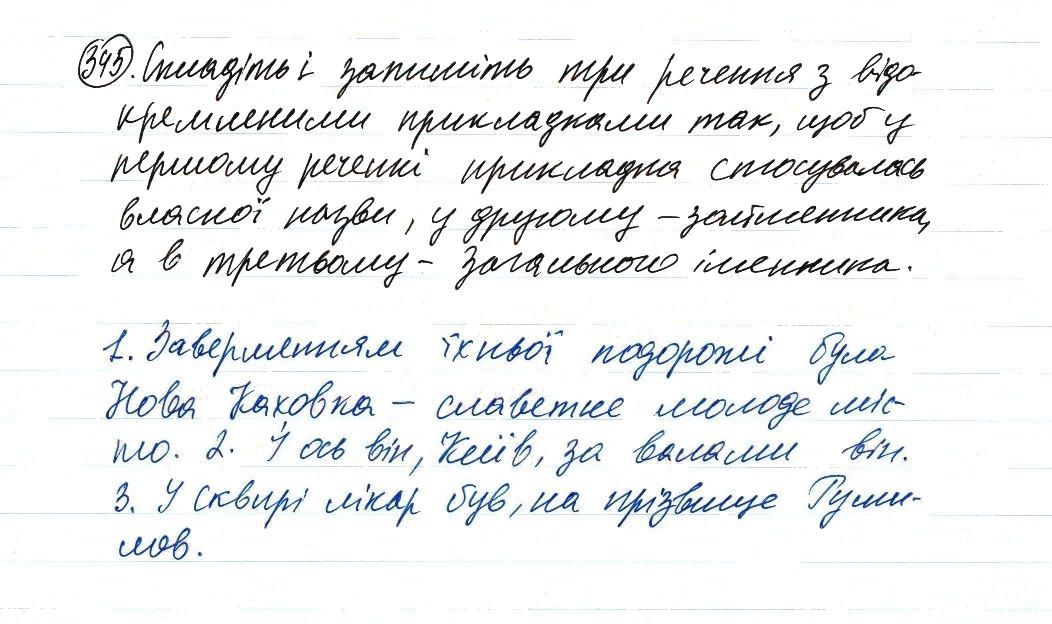 345. Складіть і запишіть три речення з відо-
кремленими прикладками так, щоб у
першому реченні прикладка стосувалась
власної назви, у другому – займенника,
а в третьому – загального іменника.
1. Завершенням їхньої подорожі була
Нова Каховка – славетне молоде міс-
то. 2. І ось він, Київ, за валами він.
3. У Сквирі лікар був, на прізвище Руми-
лов.